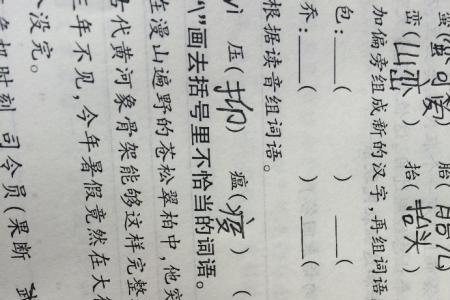 蛮(蛮可爱) 胎(胎儿
峦(山峦) 抬(抬头)
加偏旁组成新的汉字,再组词语
包:____( ) ____(
乔:____( ) ____(
根据读音组词语。
yì 压(抑) 瘟(疫) (
\”画去括号里不恰当的词语。
在漫山遍野的苍松翠柏中,他突
代黄河象骨架能够这样完整
三年不见,今年暑假竟然在大
没完。
机时刻,司令员(果断 武